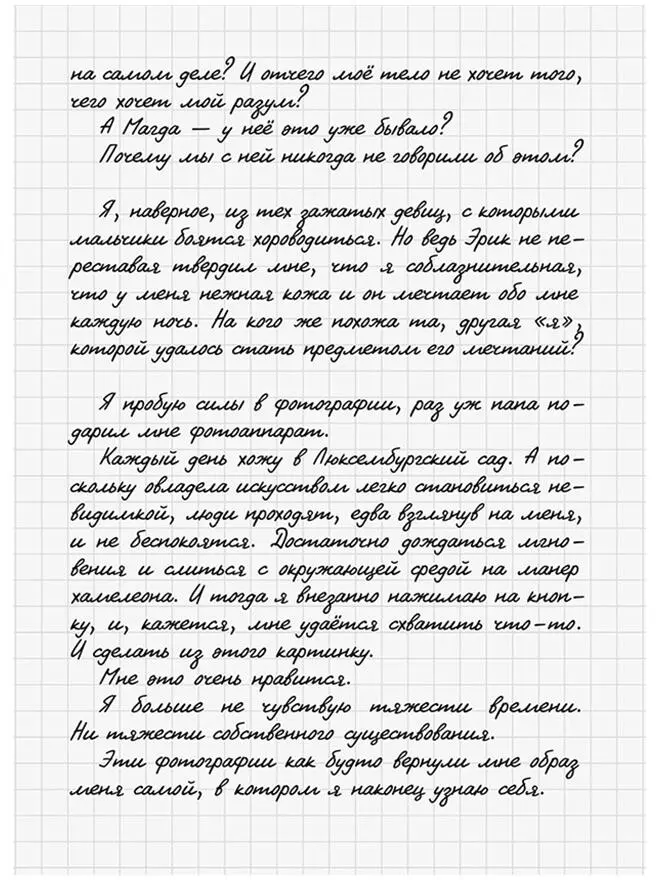 на самом деле? И отчего моё тело не хочет того,
чего хочет мой разум?
А Магда — у неё это уже бывало?
Почему мы с ней никогда не говорили об этом?
Я, наверное, из тех зажатых девиц, с которыми
мальчики боятся хороводиться. Но ведь Эрик не пе-
реставая твердил мне, что я соблазнительная,
что у меня нежная кожа и он мечтает обо мне
каждую ночь. На кого же похожа та, другая «я»,
которой удалось стать предметом его мечтаний?
Я пробую силы в фотографии, раз уж папа по-
дарил мне фотоаппарат.
Каждый день хожу в Люксембургский сад. А по-
скольку овладела искусством легко становиться не-
видимкой, люди проходят, едва взглянув на меня,
и не беспокоятся. Достаточно дождаться мгно-
вения и слиться с окружающей средой на манер
хамелеона. И тогда я внезапно нажимаю на кноп-
ку, и, кажется, мне удаётся схватить что-то.
И сделать из этого картинку.
Мне это очень нравится.
Я больше не чувствую тяжести времени.
Ни тяжести собственного существования.
Эти фотографии как будто вернули мне образ
меня самой, в котором я наконец узнаю себя.